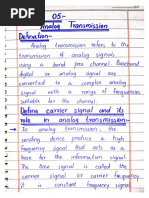 05:-
Analog Transmission
Defination:-
Analog transmission refers to the
transmission of analog signals
using a band pass channel. Baseband
digital or analog signal are
converted to a complex analog
signal with a range of frequencies
suitable for the channel.
Define carrier signal and its
role in analog transmission:-
In analog transmission, the
sending device produce a high
frequency signal that acts as a
base for the information signal
The base signal is called the
carrier signal or carrier frequency
it is constant frequency signal